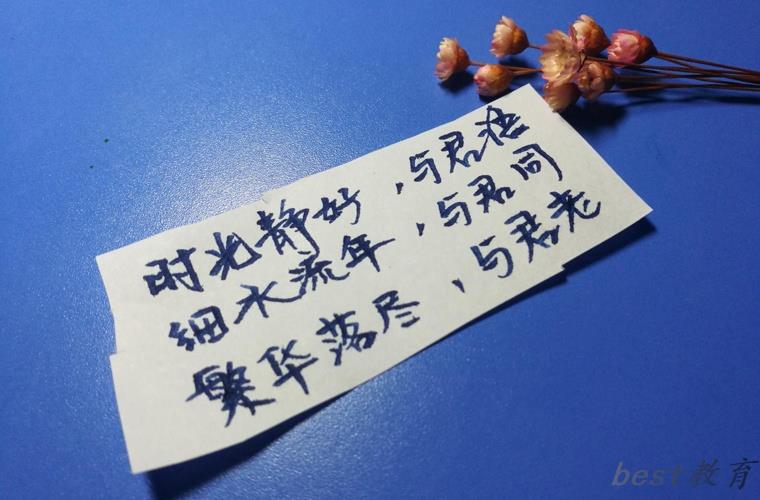 时光静好，与君语
细水流年，与君同
繁华落尽，与君老
best教育